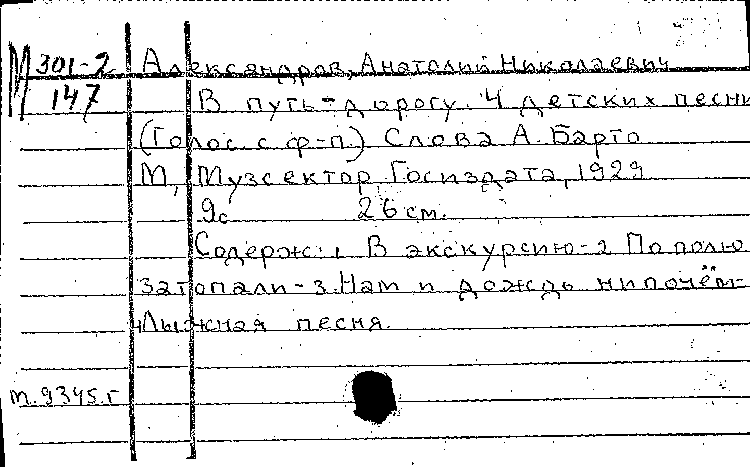 М 301-2 Александров, Анатолий Николаевич
147 В путь-дорогу. 4 детских песни
(Голос с ф-п.) Слова А. Барто
М, Музсектор Госиздата, 1929
9с 26 см.
Содерж: 1 В экскурсию-2 По полю
затопали-3.Нам и дождь нипочём-
4Лыжная песня.
т.9345.г